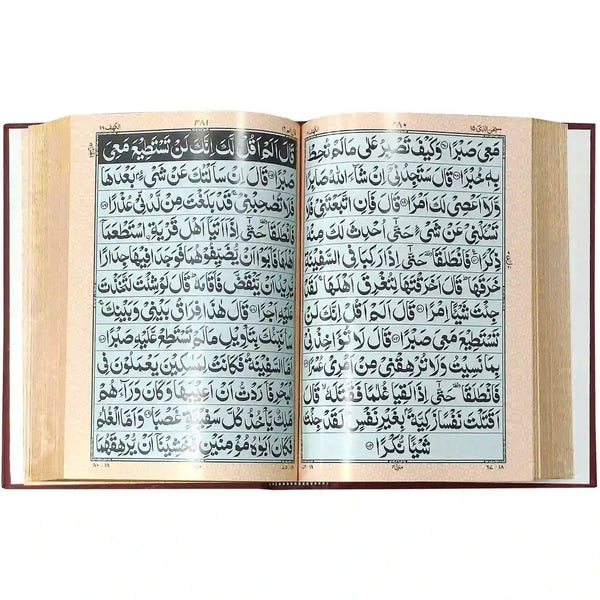 سبحن الذی ١٥
٣٨٠
الکهف ١٨
مَعِیَ صَبْرًا وَكَيْفَ تَصْبِرُ عَلٰى مَا لَمْ تُحِطْ
بِهٖ خُبْرًا قَالَ سَتَجِدُنِيْٓ اِنْ شَآءَ اللّٰهُ صَابِرًا
وَّلَآ اَعْصِيْ لَكَ اَمْرًا قَالَ فَاِنِ اتَّبَعْتَنِيْ فَلَا
تَسْـَٔلْنِيْ عَنْ شَيْءٍ حَتّٰٓى اُحْدِثَ لَكَ مِنْهُ
ذِكْرًا فَانْطَلَقَا حَتّٰٓى اِذَا رَكِبَا فِي السَّفِيْنَةِ
خَرَقَهَا قَالَ اَخَرَقْتَهَا لِتُغْرِقَ اَهْلَهَا لَقَدْ
جِئْتَ شَيْـًٔا اِمْرًا قَالَ اَلَمْ اَقُلْ اِنَّكَ لَنْ
تَسْتَطِيْعَ مَعِيَ صَبْرًا قَالَ لَا تُؤَاخِذْنِيْ
بِمَا نَسِيْتُ وَلَا تُرْهِقْنِيْ مِنْ اَمْرِيْ عُسْرًا
فَانْطَلَقَا حَتّٰٓى اِذَا لَقِيَا غُلٰمًا فَقَتَلَهٗ قَالَ
اَقَتَلْتَ نَفْسًا زَكِيَّةًۢ بِغَيْرِ نَفْسٍ لَقَدْ جِئْتَ
شَيْـًٔا نُّكْرًا
٣٨١
الکهف ١٨
قَالَ اَلَمْ اَقُلْ لَّكَ اِنَّكَ لَنْ تَسْتَطِيْعَ مَعِيَ
صَبْرًا قَالَ اِنْ سَاَلْتُكَ عَنْ شَيْءٍۢ بَعْدَهَا
فَلَا تُصٰحِبْنِيْ قَدْ بَلَغْتَ مِنْ لَّدُنِّيْ عُذْرًا
فَانْطَلَقَا حَتّٰٓى اِذَآ اَتَيَآ اَهْلَ قَرْيَةِ اِۨسْتَطْعَمَآ
اَهْلَهَا فَاَبَوْا اَنْ يُّضَيِّفُوْهُمَا فَوَجَدَا فِيْهَا جِدَارًا
يُّرِيْدُ اَنْ يَّنْقَضَّ فَاَقَامَهٗ قَالَ لَوْ شِئْتَ لَتَّخَذْتَ
عَلَيْهِ اَجْرًا قَالَ هٰذَا فِرَاقُ بَيْنِيْ وَبَيْنِكَ
سَاُنَبِّئُكَ بِتَاْوِيْلِ مَا لَمْ تَسْتَطِعْ عَّلَيْهِ صَبْرًا
اَمَّا السَّفِيْنَةُ فَكَانَتْ لِمَسٰكِيْنَ يَعْمَلُوْنَ فِي
الْبَحْرِ فَاَرَدْتُّ اَنْ اَعِيْبَهَا وَكَانَ وَرَآءَهُمْ
مَّلِكٌ يَّاْخُذُ كُلَّ سَفِيْنَةٍ غَصْبًا وَاَمَّا الْغُلٰمُ
فَكَانَ اَبَوٰهُ مُؤْمِنَيْنِ فَخَشِيْنَآ اَنْ يُّرْهِقَهُمَا